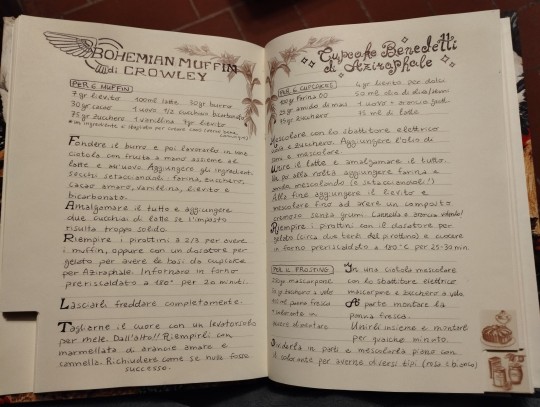 BOHEMIAN MUFFIN
di CROWLEY
PER 6 MUFFIN
7gr lievito 100ml latte 50gr burro
30gr cacao 1 uovo 1/2 cucchiaio bicarbonato
75gr zucchero 1 vanillina 75gr
Fondere il burro e poi lavorarlo in una
ciotola con frusta a mano assieme al
latte e all'uovo. Aggiungere gli ingredienti
secchi setacciandoli: farina, zucchero,
cacao amaro, vanillina, lievito e
bicarbonato.
Amalgamare il tutto e aggiungere
due cucchiai di latte se l'impasto
risulta troppo solido.
Riempire i pirottini a 2/3 per avere
i muffin, oppure con un dosatore per
gelato per avere le basi da cupcake
per Aziraphale. Infornare in forno
preriscaldato a 180° per 20 minuti.
Lasciarli freddare completamente.
Taglierne il cuore con un levatorsolo
per mele. Dall'alto!! Riempirli con
marmellata di arancie amare e
cannella. Richiudere come se nulla fosse
successo.
Cupcake Benedetti
di Aziraphale
PER 6 CUPCAKES 4gr lievito per dolci
farina 00 50 ml olio di
25gr amido di mais 1 uovo
zucchero 75 ml di latte
Mescolare con lo sbattitore elettrico
uova e zucchero. Aggiungere l'olio di
semi e mescolare.
Unire il latte e amalgamare il tutto.
Un po' alla volta aggiungere farina e
amido mescolando (e setacciandoli!)
Alla fine aggiungere il lievito e
mescolare fino ad avere un composto
cremoso senza grumi.
Riempire i pirottini con il dosatore per
gelato (circa due terzi del pirottino) e cuocere
in forno preriscaldato a 180°C per 25-30 min
PER IL FROSTING In una ciotola mescolare
mascarpone con lo sbattitore elettrico
zucchero a velo mascarpone e zucchero a velo
ml panna fresca A parte montare la
colorante in panna fresca.
polvere alimentare Unirli insieme e montare
per qualche minuto.
Dividerla in parti e mescolarla piano con
il colorante per averne diversi tipi (rosa e bianco)